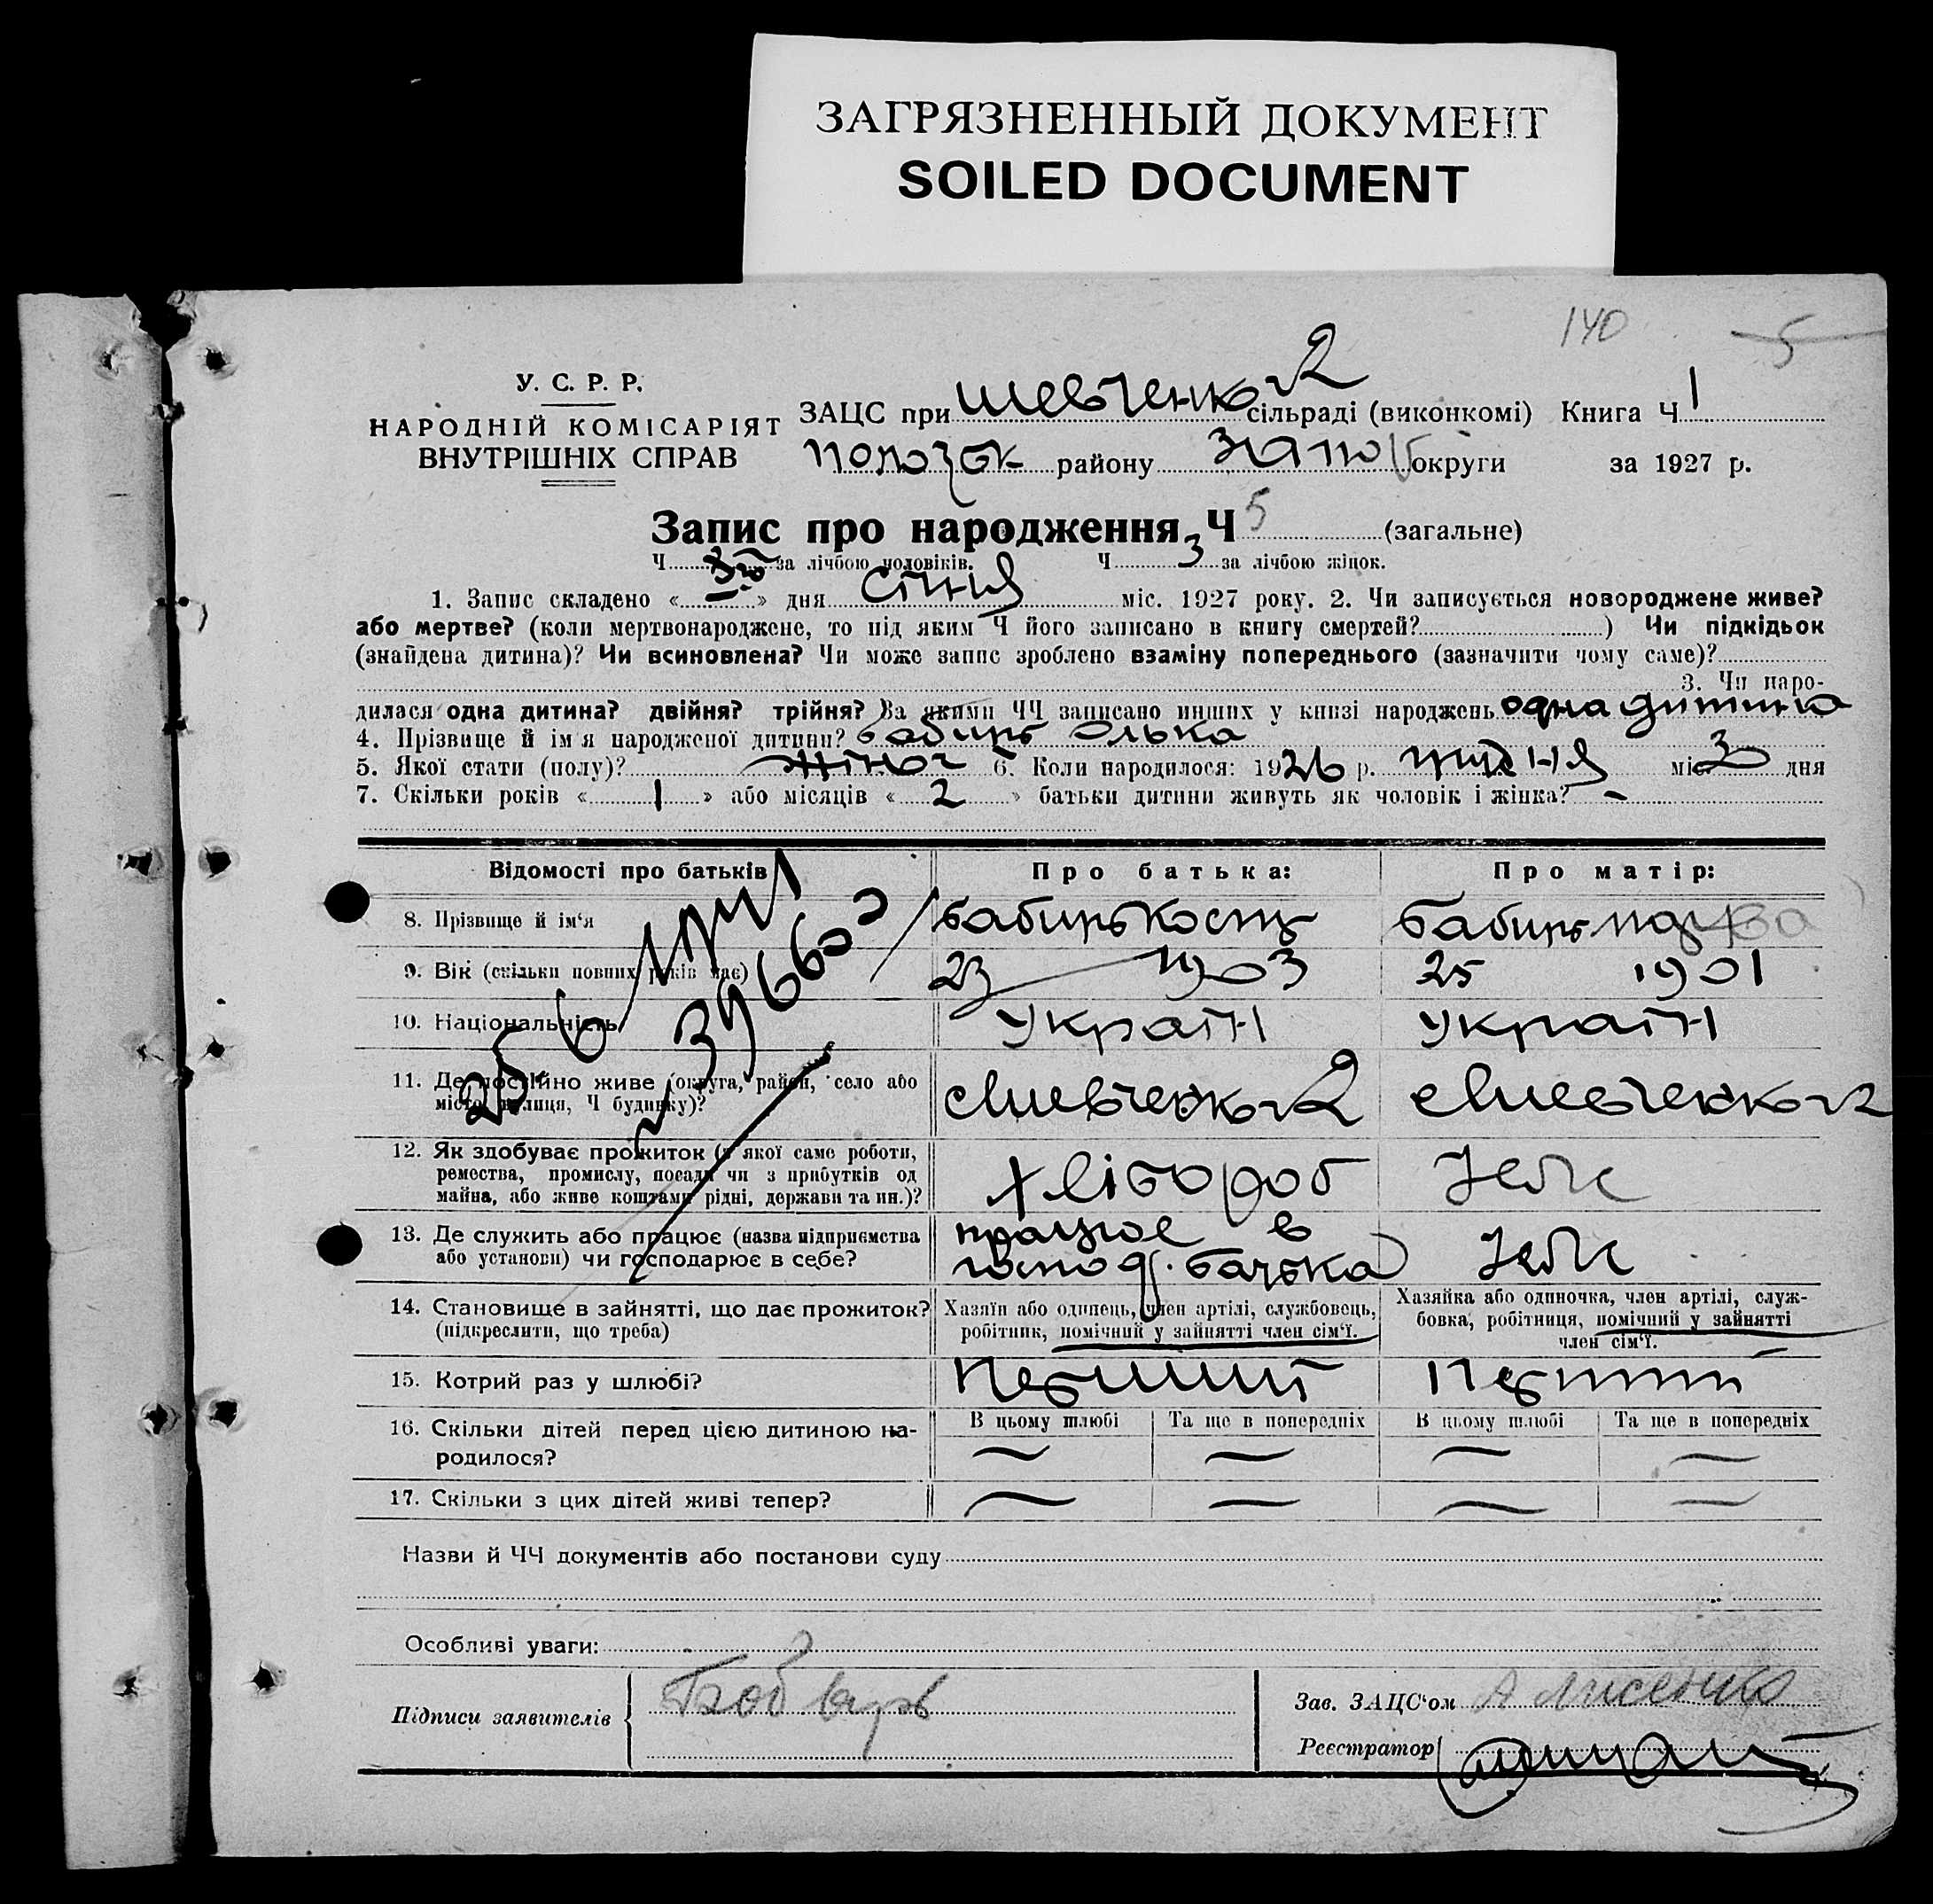 ЗАГРЯЗНЕННЫЙ ДОКУМЕНТ
SOILED DOCUMENT
140 5
У. С. Р. Р.
НАРОДНІЙ КОМІСАРІЯТ
ВНУТРІШНІХ СПРАВ
ЗАЦС при Шевченко №2 сільраді (виконкомі) Книга Ч 1
району Запо округи за 1927 р.
Запис про народження, Ч 5 (загальне)
Ч за лічбою чоловіків. Ч 3 за лічбою жінок.
1. Запис складено « » дня Січня міс. 1927 року. 2. Чи записується новороджене живе?
або мертве? (коли мертвонароджене, то під яким Ч його записано в книгу смертей? ) Чи підкідьок
(знайдена дитина)? Чи всиновлена? Чи може запис зроблено взаміну попереднього (зазначити чому саме)?
3. Чи наро-
дилася одна дитина? двійня? трійня? За якими ЧЧ записано инших у книзі народжень одна дитина
4. Прізвище й ім'я народженої дитини? Олька
5. Якої стати (полу)? жіноч 6. Коли народилося: 1926 р. грудня міс. 3 дня
7. Скільки років « 1 » або місяців « 2 » батьки дитини живуть як чоловік і жінка? -
Відомості про батьків
Про батька:
Про матір:
8. Прізвище й ім'я
9. Вік (скільки повних років має) 23 1903 25 1901
10. Національність Україн Україн
11. Де постійно живе (округа, район, село або
місто, вулиця, Ч будинку)?
с Шевченко №2 с Шевченко №2
12. Як здобуває прожиток (з якої саме роботи,
ремества, промислу, посади чи з прибутків од
майна, або живе коштами рідні, держави та ин.)?
хлібороб
13. Де служить або працює (назва підприємства
або установи) чи господарює в себе?
працює в
госпо д. батька
14. Становище в зайнятті, що дає прожиток?
(підкреслити, що треба)
Хазяїн або одинець, член артілі, службовець,
робітник, помічний у зайнятті член сім'ї.
Хазяйка або одиночка, член артілі, служ-
бовка, робітниця, помічний у зайнятті
член сім'ї.
15. Котрий раз у шлюбі? Перший Перший
16. Скільки дітей перед цією дитиною на-
родилося?
В цьому шлюбі Та ще в попередніх В цьому шлюбі Та ще в попередніх
17. Скільки з цих дітей живі тепер?
Назви й ЧЧ документів або постанови суду
Особливі уваги:
Підписи заявителів
Зав. ЗАЦС'ом А Лисенко
Реєстратор